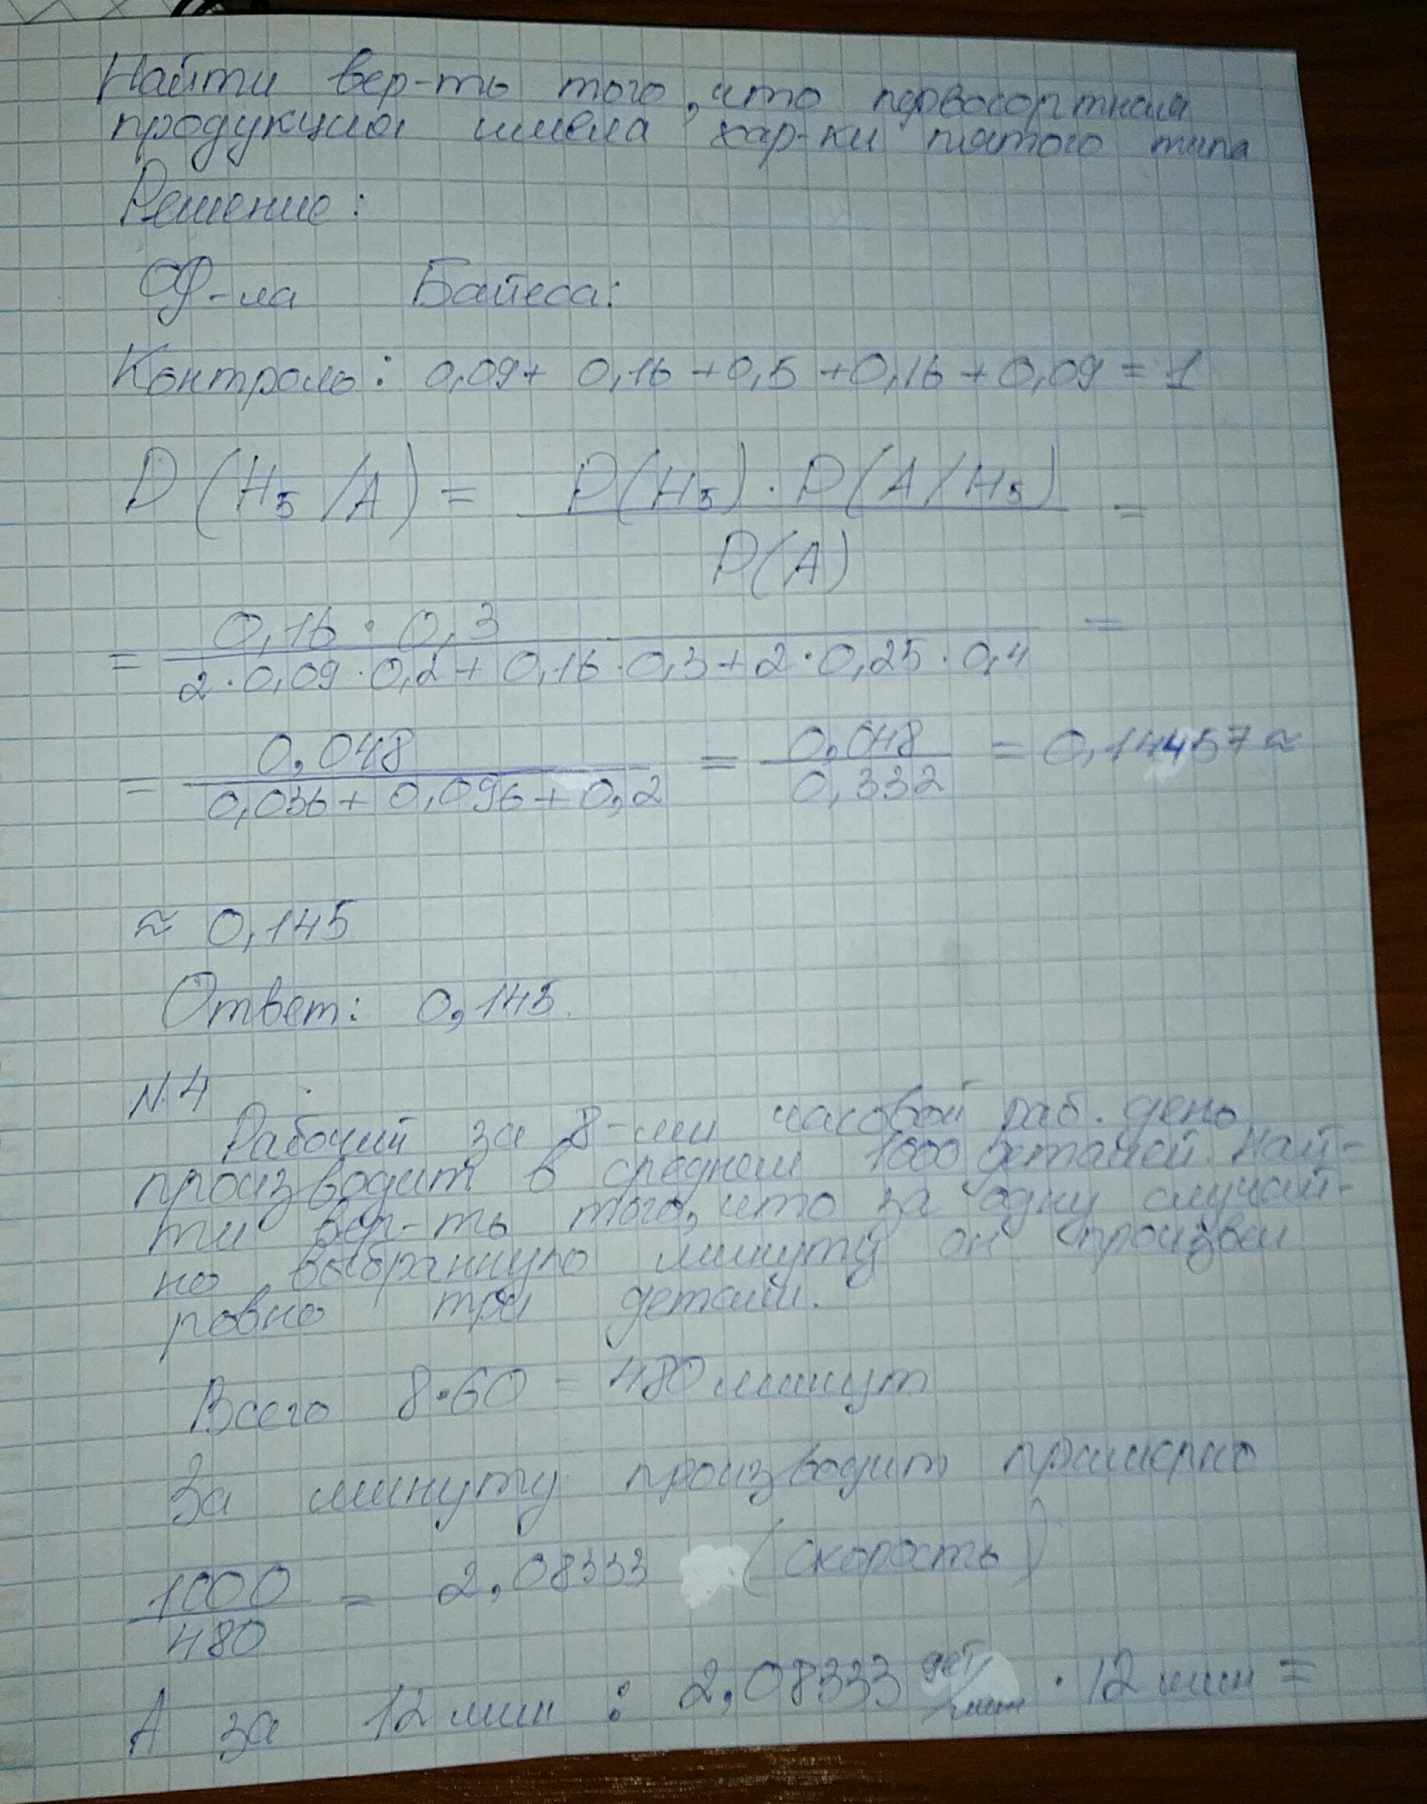 Найти вер-ть того, что первосортная
продукция имела хар-ки пятого типа
Решение:
Ф-ла Байеса:
Контроль: 0,09+ 0,16+0,5+0,16+0,09=1
P(H₅/A) = P(H₅)·P(A/H₅) / P(A) =
= 0,16·0,3 / 2·0,09·0,2+0,16·0,3+2·0,25·0,4 =
= 0,048 / 0,036+0,096+0,2 = 0,048 / 0,332 = 0,14457≈
≈ 0,145
Ответ: 0,145.
N.4
Рабочий за 8-ми часовой раб. день
производит в среднем 1000 деталей. Най-
ти вер-ть того, что за одну случай-
но выбранную минуту он произвел
ровно три детали.
Всего 8·60 = 480 минут
За минуту производит примерно
1000 / 480 = 2,08333 (скорость)
А за 12 мин : 2,08333 дет/мин · 12 мин =